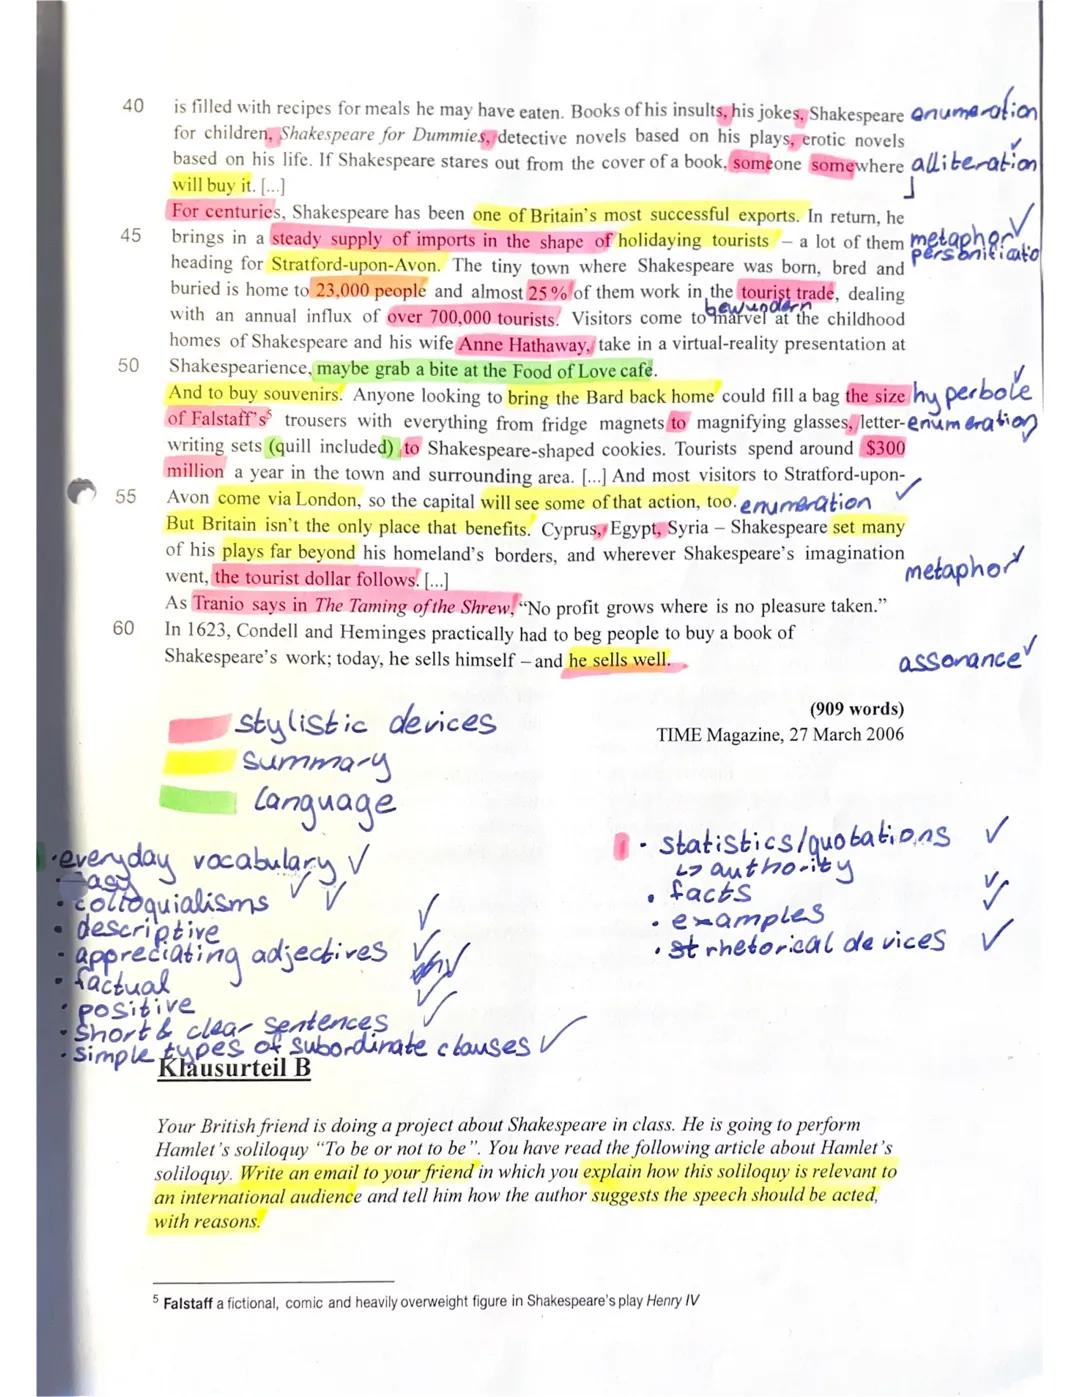 40 is filled with recipes for meals he may have eaten. Books of his insults, his jokes, Shakespeare enumeration
for children, Shakespeare for Dummies, detective novels based on his plays, erotic novels
based on his life. If Shakespeare stares out from the cover of a book, someone somewhere alliteration
will buy it. [...]
For centuries, Shakespeare has been one of Britain's most successful exports. In return, he
45 brings in a steady supply of imports in the shape of holidaying tourists – a lot of them metaphor
heading for Stratford-upon-Avon. The tiny town where Shakespeare was born, bred and
buried is home to 23,000 people and almost 25 % of them work in the tourist trade, dealing
bewundern
with an annual influx of over 700,000 tourists. Visitors come to marvel at the childhood
homes of Shakespeare and his wife Anne Hathaway, take in a virtual-reality presentation at
50 Shakespearience, maybe grab a bite at the Food of Love café.
And to buy souvenirs. Anyone looking to bring the Bard back home could fill a bag the size hyperbole
of Falstaff's⁵ trousers with everything from fridge magnets to magnifying glasses, letter- enumeration
writing sets (quill included) to Shakespeare-shaped cookies. Tourists spend around $300
million a year in the town and surrounding area. [...] And most visitors to Stratford-upon-
55 Avon come via London, so the capital will see some of that action, too. enumeration
But Britain isn't the only place that benefits. Cyprus, Egypt, Syria – Shakespeare set many
of his plays far beyond his homeland's borders, and wherever Shakespeare's imagination
went, the tourist dollar follows. [...] metaphor
As Tranio says in The Taming of the Shrew, "No profit grows where is no pleasure taken."
60 In 1623, Condell and Heminges practically had to beg people to buy a book of
Shakespeare's work; today, he sells himself – and he sells well. assonance
(909 words)
TIME Magazine, 27 March 2006
stylistic devices
summary
language
• everyday vocabulary
• easy
• colloquialisms
• descriptive
• appreciating adjectives
• factual
• positive
• short & clear sentences
• simple types of subordinate clauses
• statistics/quotations
↳ authority
• facts
• examples
• rhetorical devices
Klausurteil B
Your British friend is doing a project about Shakespeare in class. He is going to perform
Hamlet's soliloquy "To be or not to be". You have read the following article about Hamlet's
soliloquy. Write an email to your friend in which you explain how this soliloquy is relevant to
an international audience and tell him how the author suggests the speech should be acted,
with reasons.
⁵ Falstaff a fictional, comic and heavily overweight figure in Shakespeare's play Henry IV